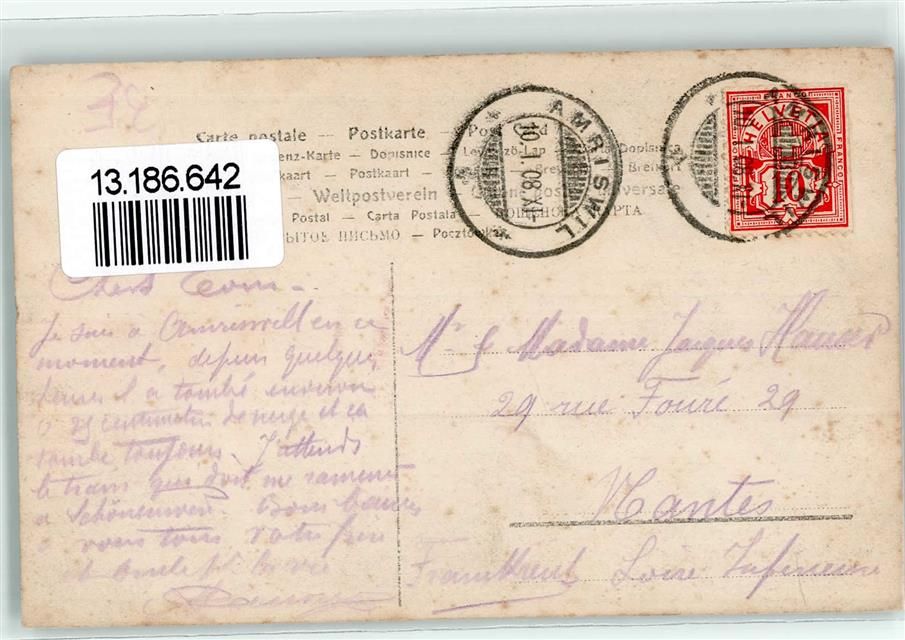 Carte postale — Postkarte — Post card
enz-Karte — Dopisnice — Lev. Lap — Dopisnica
kaart — Postkaart — Brev
Weltpostverein — universale
Postal — Carta Postala — КАРТА
ЫТОЕ ПИСЬМО — Pocztówka
13.186.642
AMRISWIL
10. I. 08. XI
FRANCO
HELVETIA
10
FRANCO
Chers Tous —
Je suis à Amrisweil en ce
moment, depuis quelques
heures il a tombé environ
25 centimètres de neige et ça
tombe toujours. J'attends
le train qui doit me ramener
à Schönenwerd. Bons baisers
à vous tous Votre frère
et oncle
Mr & Madame Jacques
29 rue Fouré 29
Nantes
Frankreich Loire Inferieure